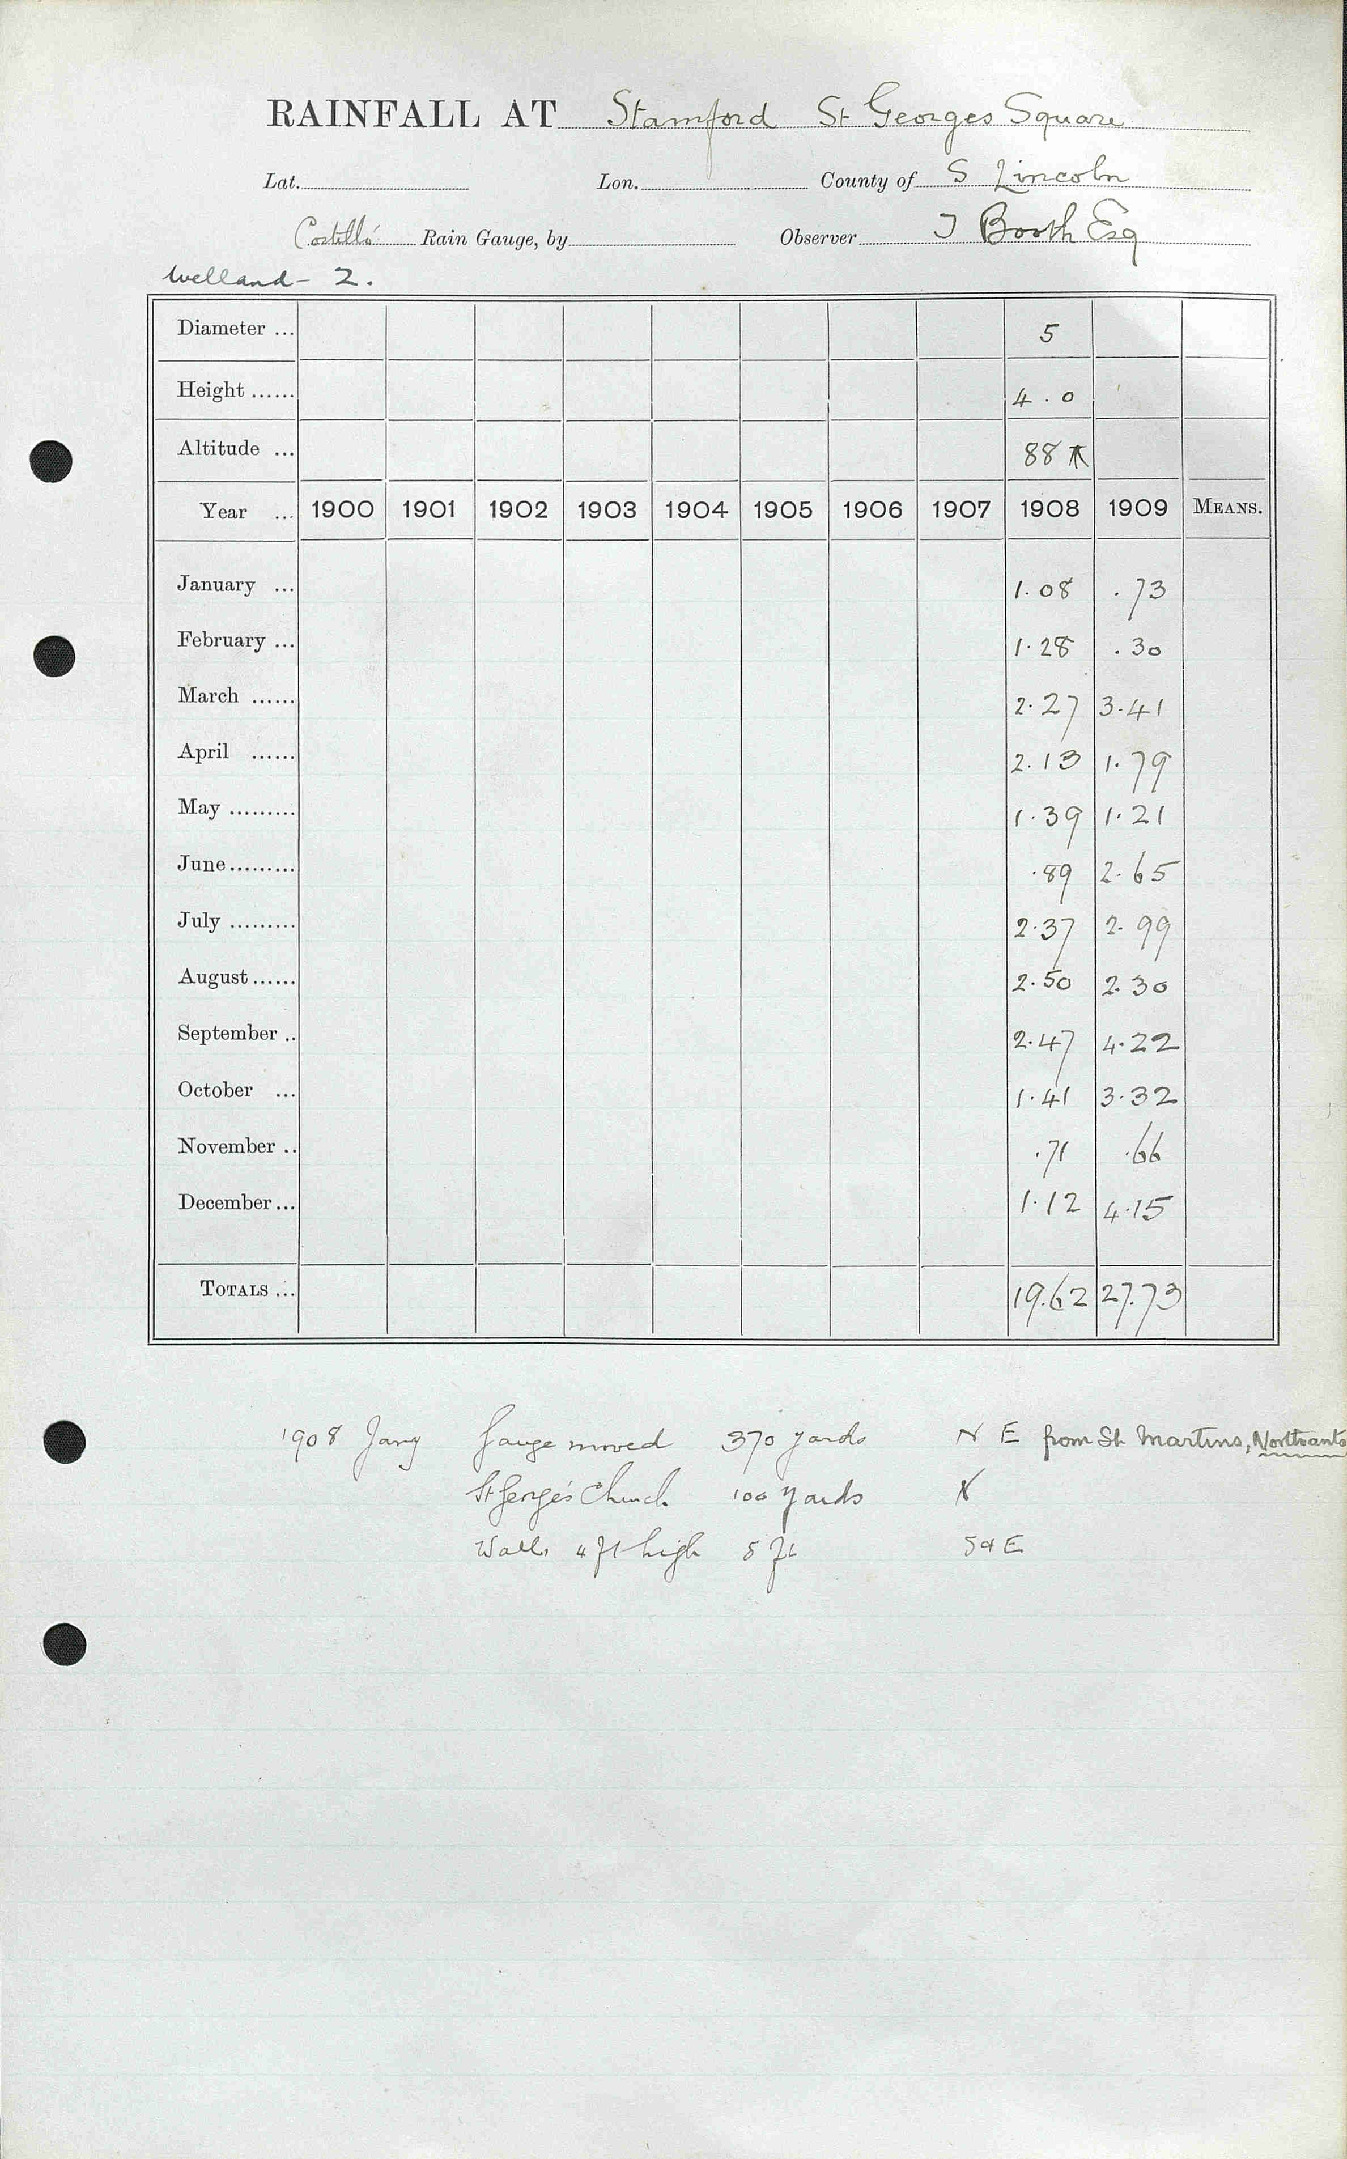 RAINFALL AT Stamford St Georges Square
Lat. Lon. County of S Lincoln
Rain Gauge, by Observer J Booth Esq
Welland - 2.
Diameter ... 5
Height ...... 4 . 0
Altitude ... 88
Year ... 1900 1901 1902 1903 1904 1905 1906 1907 1908 1909 MEANS.
January ... 1.08 .73
February ... 1.28 .30
March ...... 2.27 3.41
April ...... 2.13 1.79
May ......... 1.39 1.21
June ......... .89 2.65
July ......... 2.37 2.99
August ...... 2.50 2.30
September .. 2.47 4.22
October ... 1.41 3.32
November .. .71 .66
December ... 1.12 4.15
TOTALS ... 19.62 27.73
1908 Jany Gauge moved 370 yards N E from St Martins, Northants
St George's Church 100 yards N
Walls 4 ft high 5 ft S & E